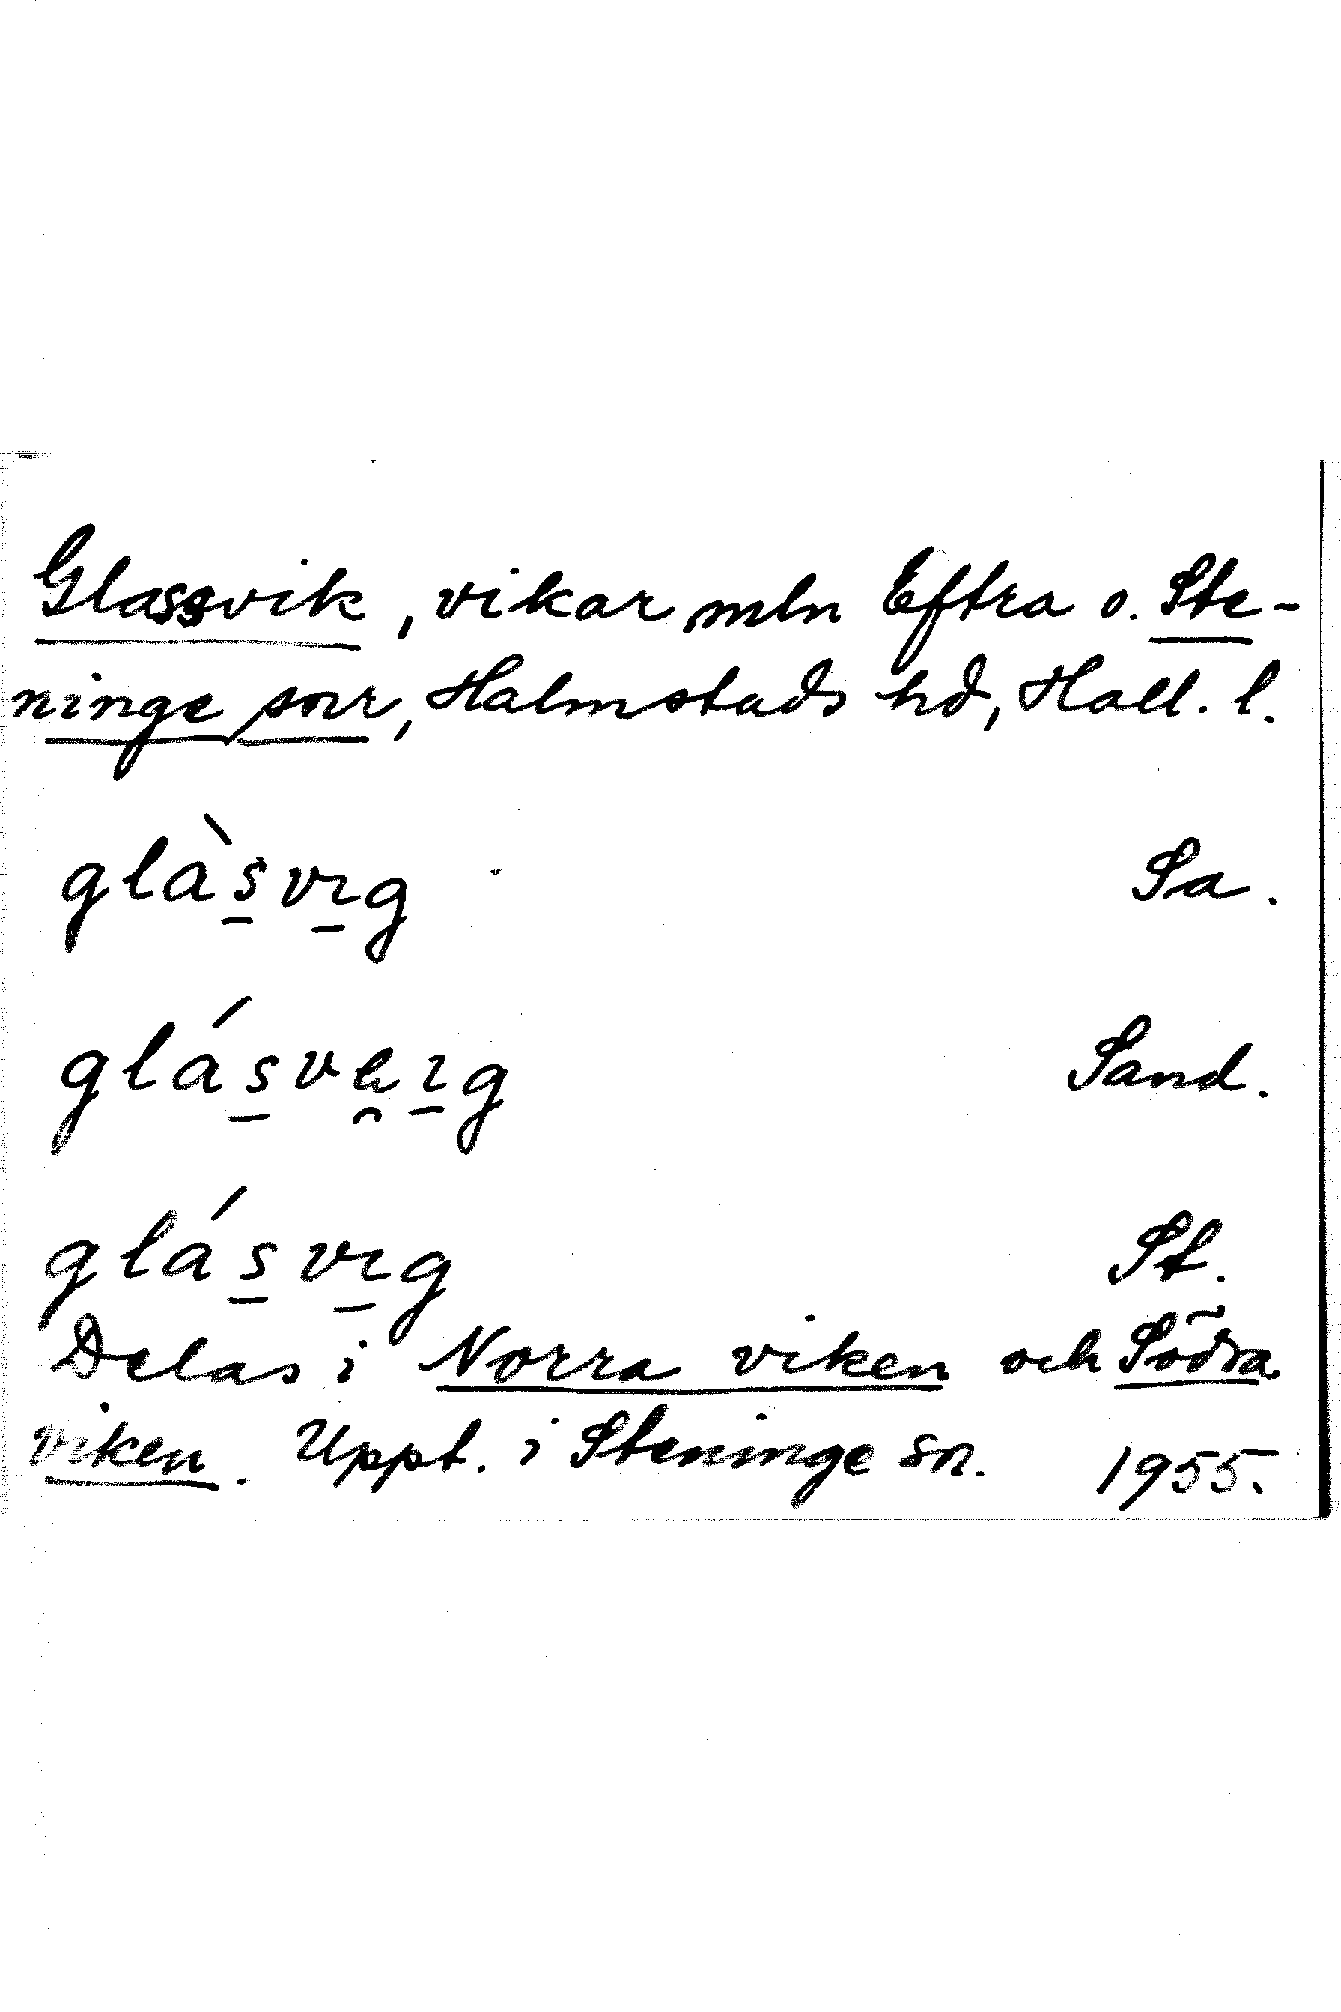 Glassvik, vikar mln Eftra o. Ste-
ninge snr, Halmstads hd, Hall. l.
glàs̱vı̱g Sa.
glás̱ve̯ı̱g Sand.
glás̱vı̱g St.
Delas i Norra viken och Södra
viken. Uppt. i Steninge sn. 1955.